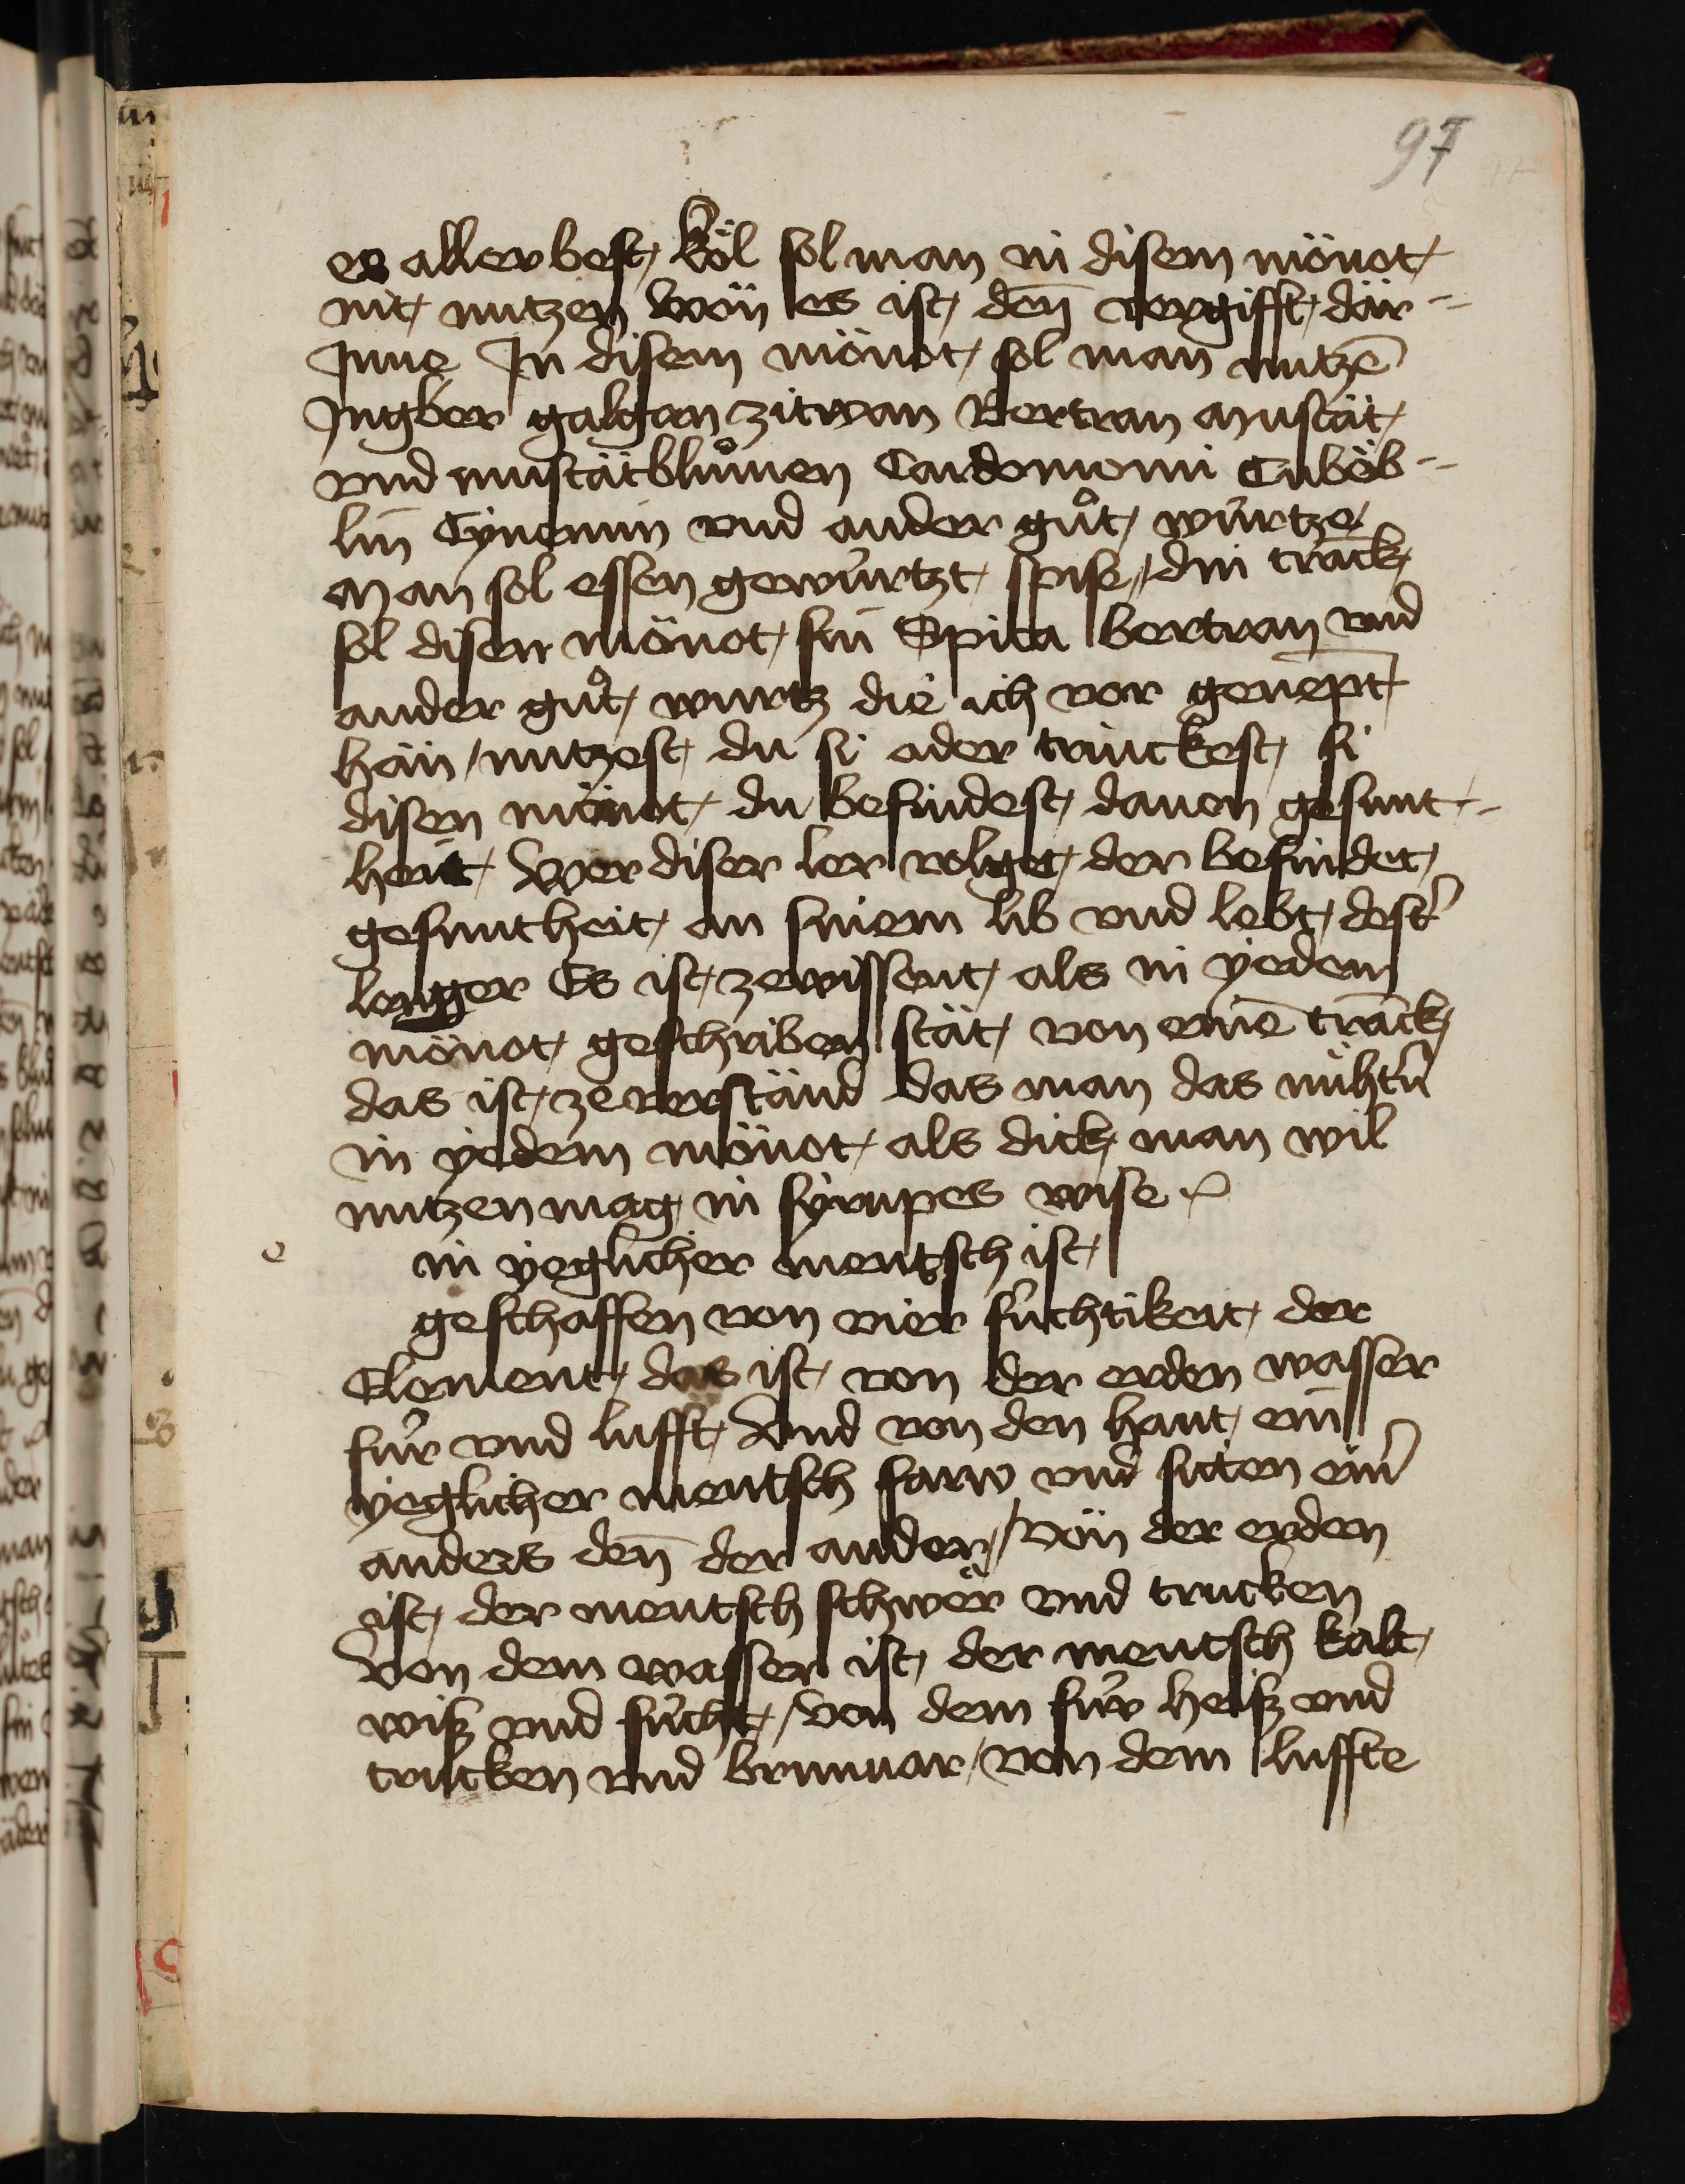 97
es aller best köl sol man in disem mönot
nit nutzen wön es ist den̄ vergifft där=
Inne In disem mönot sol man nutzē
Ingber galgan zitwan Bertran muscät
vnd muscätblůmen Cardomomi Cuböb=
lin Cÿnemin vnd ander gůt würtze
man sol essen gewürtzt spise din tranck
sol disen mönot sin Spica bertran vnd
ander gůt wurtz die ich vor genēpt
hän nutzest du si oder trinckest si
disen mönot du befindest dauon gesunt=
heit Wer diser ler volget der befindet
gesuntheit an sinem lib vnd lebt dest̛
lenger Es ist ze wissent als in ÿedem
mönot geschriben stät von einē tranck
das ist ze verständ das man das nüht̛n
in ÿedem mönot als dick man wil
nutzen mag in sÿrupes wise
e in ÿeglicher mentsch ist
geschaffen von vier füchtikeit der
Element das ist von der erden wasser
für vnd lufft Vnd von den haut ein
ÿeglicher mentsch farw vnd sitten ein̛
anders den̄ der ander Vön der erden
ist der mentsch schwer vnd trucken
Von dem wasser ist der mentsch kalt
wiß vnd fücht Von dem für heiß vnd
trucken vnd brunuar von dem luffte